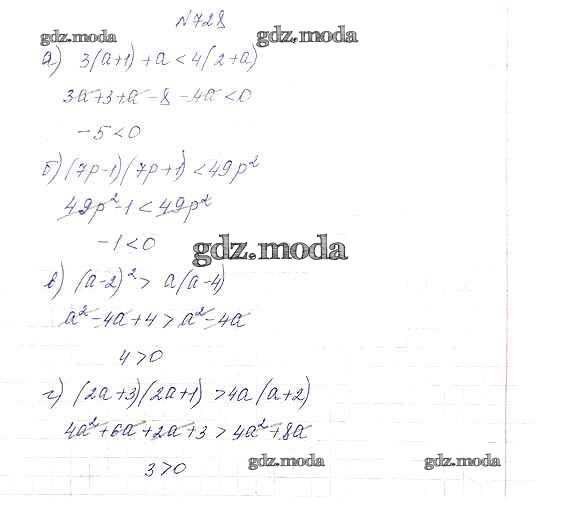 №728
gdz.moda gdz.moda
а) 3(a+1)+a<4(2+a)
3a+3+a-8-4a<0
-5<0
б) (7p-1)(7p+1)<49p²
49p²-1<49p²
-1<0
gdz.moda
в) (a-2)²> a(a-4)
a²-4a+4>a²-4a
4>0
г) (2a+3)(2a+1)>4a(a+2)
4a²+6a+2a+3>4a²+8a
3>0
gdz.moda gdz.moda